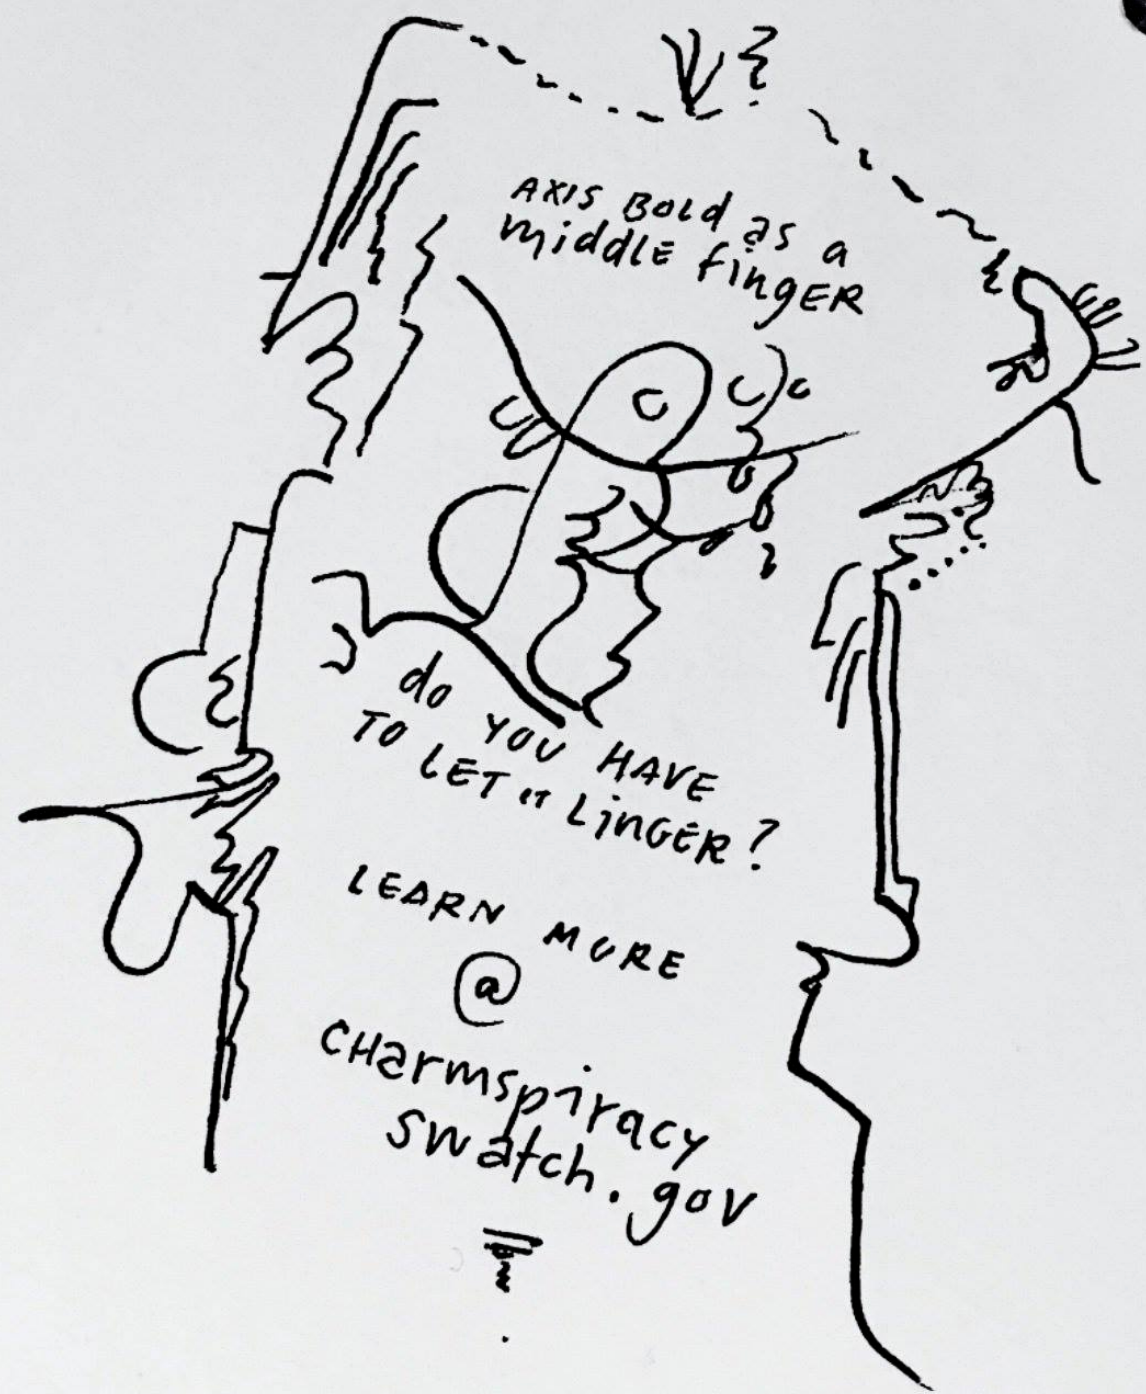 AXIS BOLd as a
middLE fingER
do YOU HAVE
TO LET IT LinGER?
LEARN MORE
@
CHarmspiracy
swatch.gov